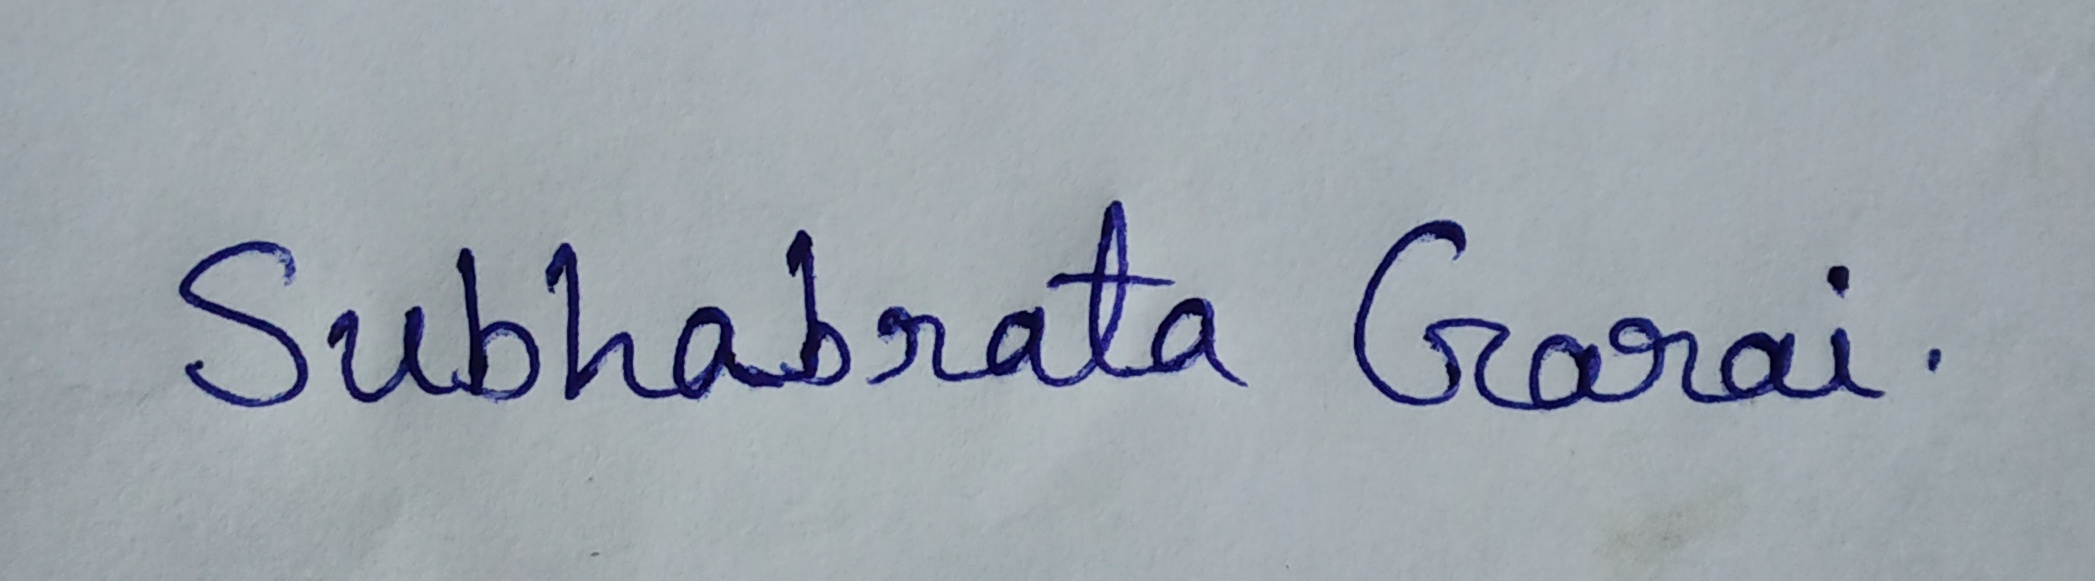 Subhabrata Garai.